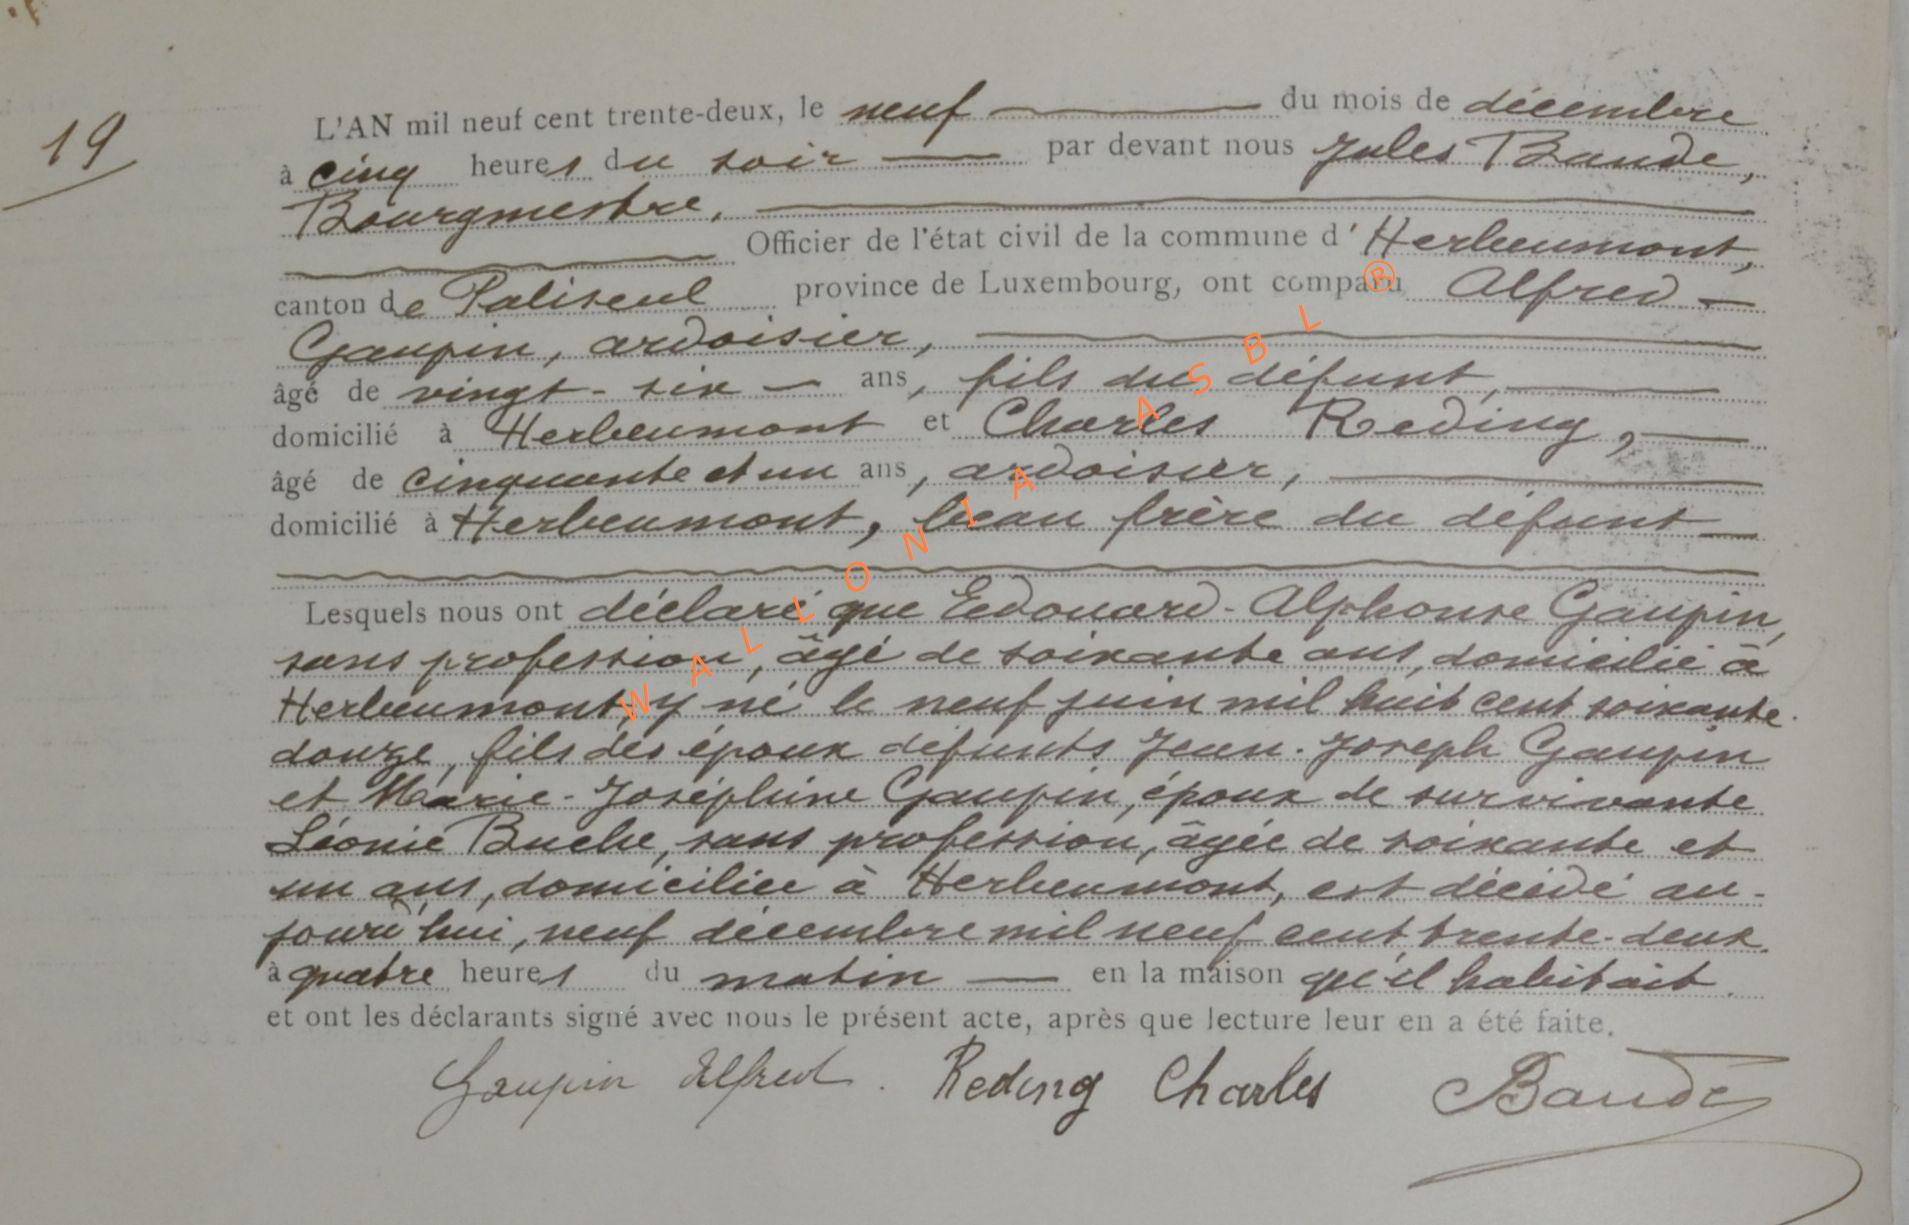 19
L'AN mil neuf cent trente-deux, le neuf du mois de décembre
à cinq heures du soir par devant nous Jules Baude,
Bourgmestre,
Officier de l'état civil de la commune d'Herbeumont,
canton de Paliseul province de Luxembourg, ont comparu Alfred
Gaupin, ardoisier,
âgé de vingt-six ans, fils du défunt,
domicilié à Herbeumont et Charles Reding,
âgé de cinquante et un ans, ardoisier,
domicilié à Herbeumont, beau frère du défunt
Lesquels nous ont déclaré que Edouard-Alphonse Gaupin,
sans profession, âgé de soixante ans, domicilié à
Herbeumont, y né le neuf juin mil huit cent soixante-
douze, fils des époux défunts Jean-Joseph Gaupin
et Marie-Joséphine Gaupin, époux de survivante
Léonie Buche, sans profession, âgée de soixante et
un ans, domiciliée à Herbeumont, est décédé au-
jourd'hui, neuf décembre mil neuf cent trente-deux
à quatre heures du matin en la maison qu'il habitait
et ont les déclarants signé avec nous le présent acte, après que lecture leur en a été faite.
Gaupin Alfred. Reding Charles Baude
WALLONIA ASBL ®